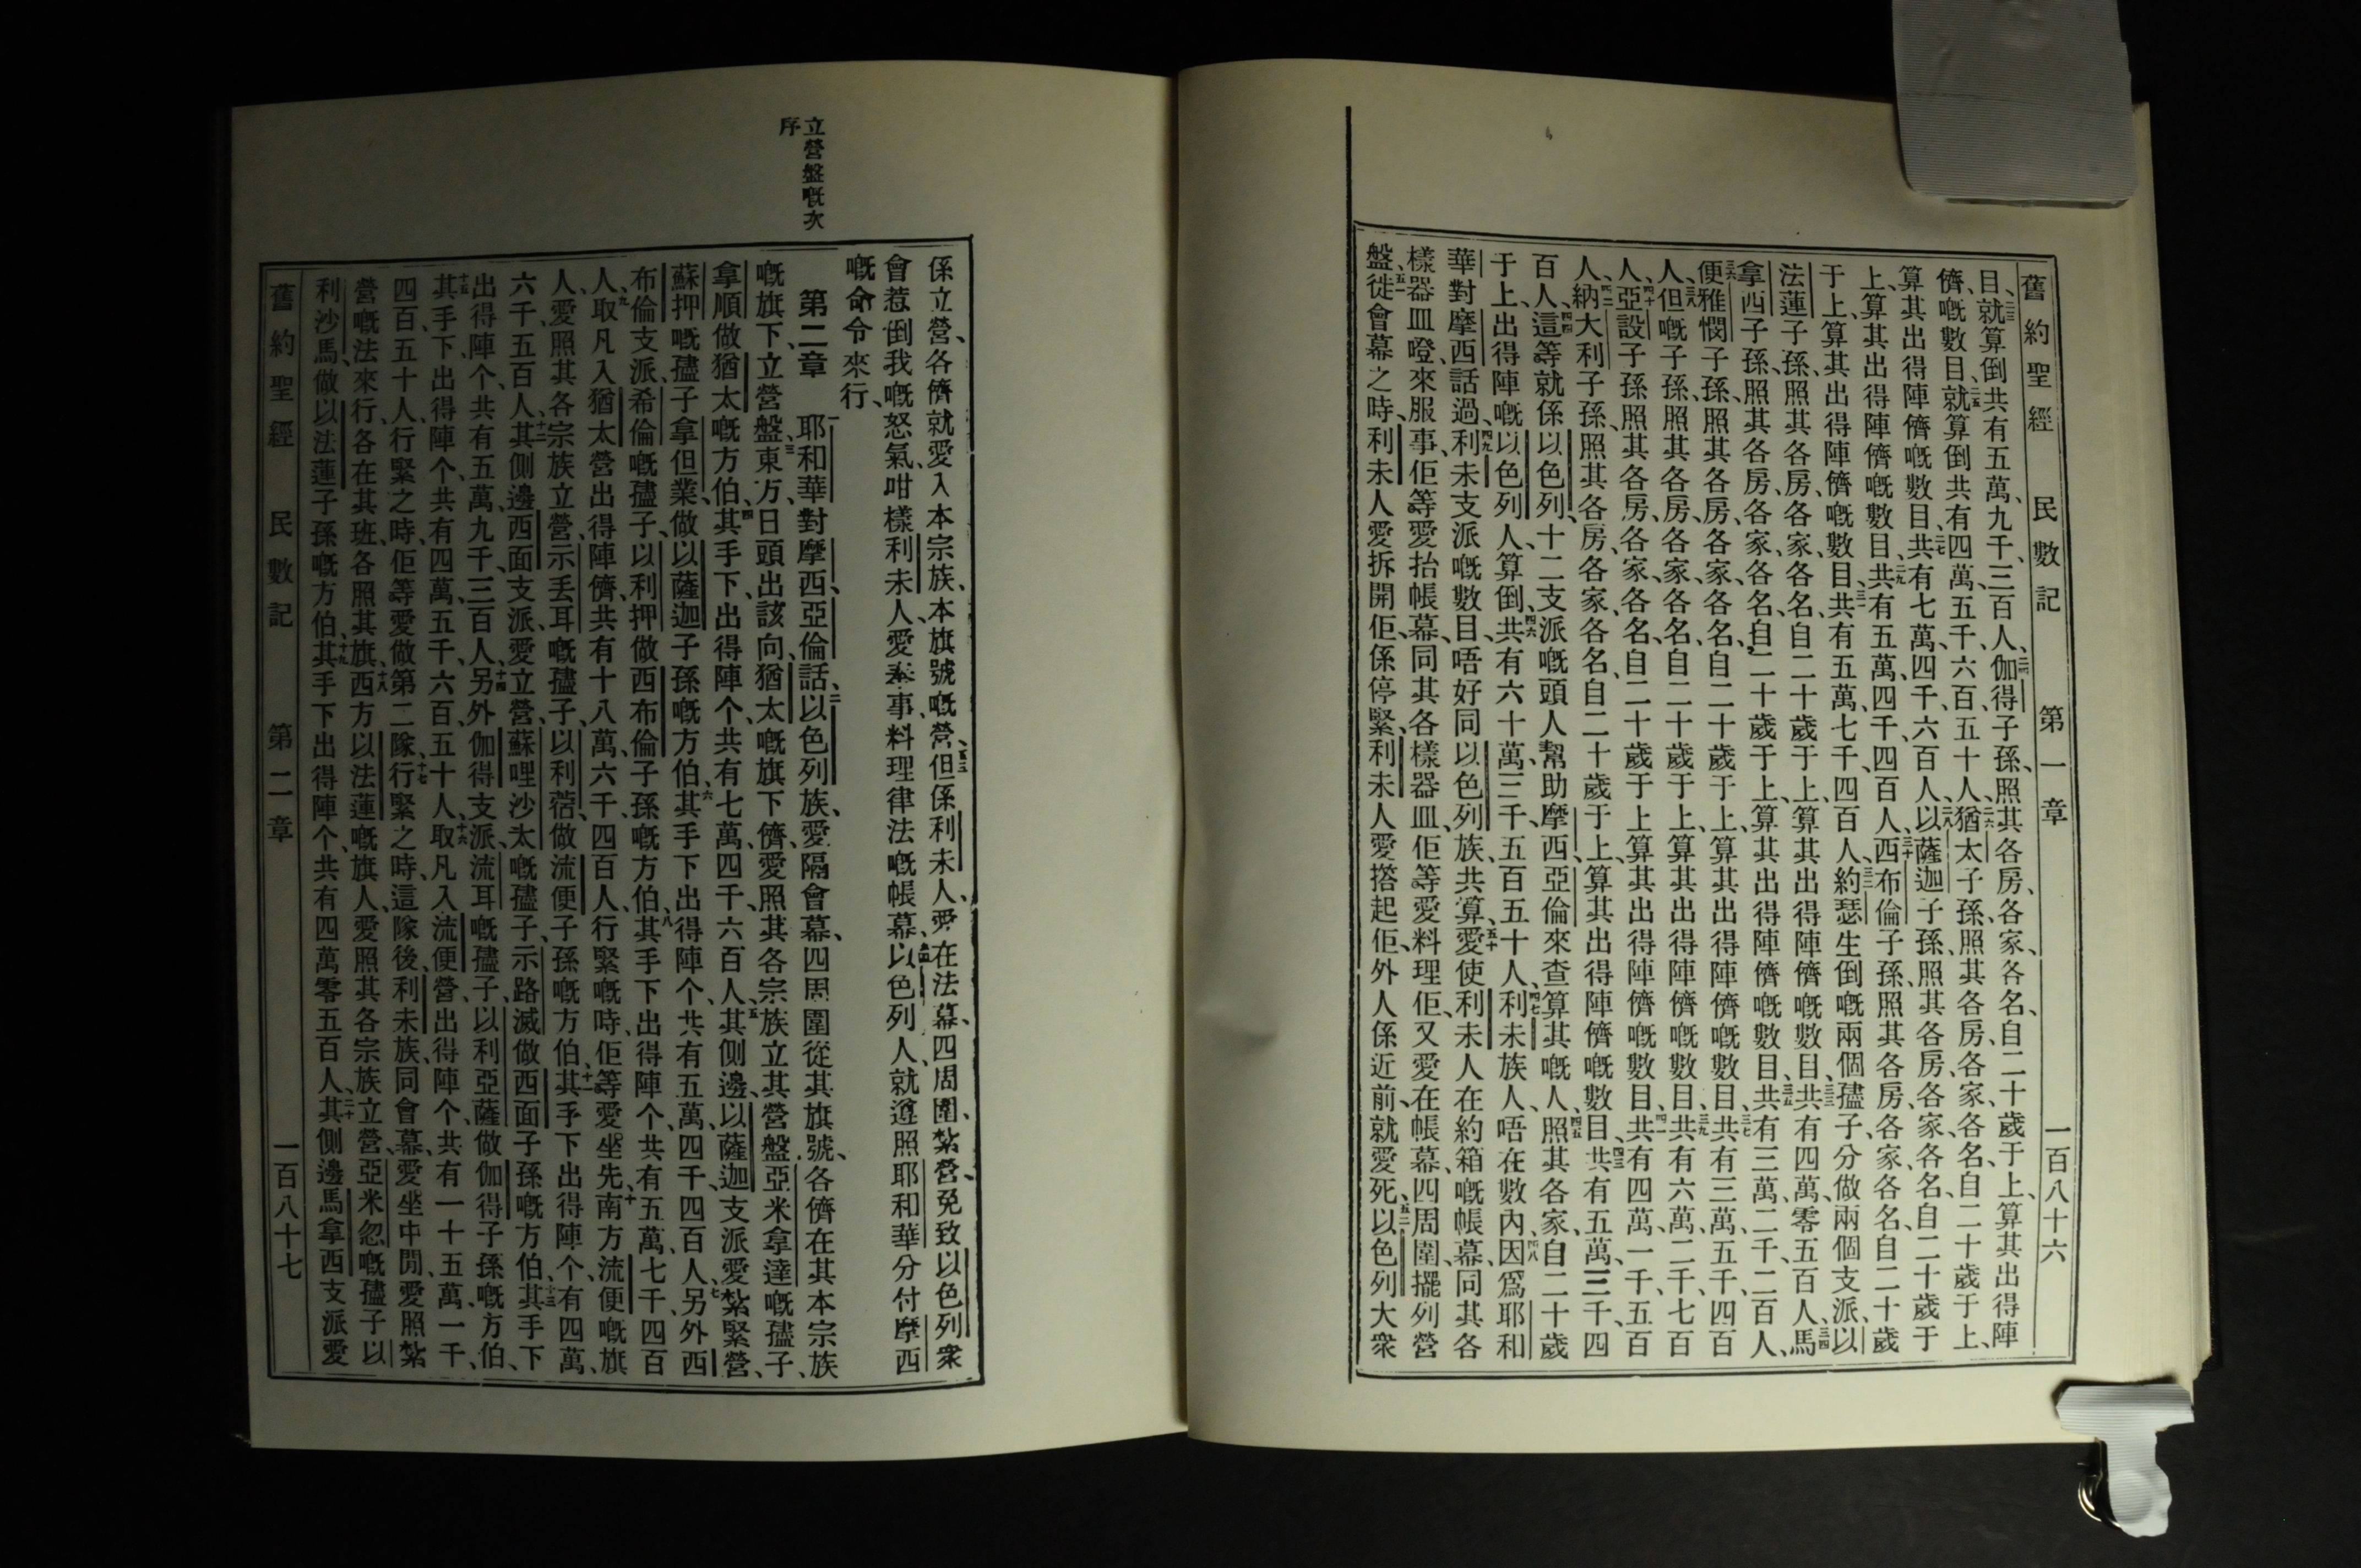 舊約聖經 民數記 第一章 一百八十六
目、二三就算倒共有五萬、九千、三百人、二四伽得子孫、照其各房、各家、各名、自二十歲于上、算其出得陣
儕、嘅數目、二五就算倒共有四萬、五千、六百五十人、二六猶太子孫、照其各房、各家、各名、自二十歲于上、
算其出得陣儕嘅數目、二七共有七萬、四千、六百人、二八以薩迦子孫、照其各房、各家、各名、自二十歲于
上、算其出得陣儕嘅數目、二九共有五萬、四千、四百人、三十西布倫子孫、照其各房、各家、各名、自二十歲
于上、算其出得陣儕嘅數目、三一共有五萬、七千、四百人、三二約瑟生倒嘅兩個孻子、分做兩個支派、以
法蓮子孫、照其各房、各家、各名、自二十歲于上、算其出得陣儕嘅數目、三三共有四萬、零五百人、三四馬
拿西子孫、照其各房、各家、各名、自二十歲于上、算其出得陣儕嘅數目、三五共有三萬、二千、二百人、
三六便雅憫子孫、照其各房、各家、各名、自二十歲于上、算其出得陣儕嘅數目、三七共有三萬、五千、四百
人、三八但嘅子孫、照其各房、各家、各名、自二十歲于上、算其出得陣儕嘅數目、三九共有六萬、二千、七百
人、四十亞設子孫、照其各房、各家、各名、自二十歲于上、算其出得陣儕嘅數目、四一共有四萬、一千、五百
人、四二納大利子孫、照其各房、各家、各名、自二十歲于上、算其出得陣儕嘅數目、四三共有五萬、三千、四
百人、四四這等就係以色列、十二支派嘅頭人幫助摩西、亞倫來查算其嘅人、四五照其各家、自二十歲
于上、出得陣嘅以色列人、算倒、四六共有六十萬、三千、五百五十人、四七利未族人、唔在數內、四八因爲耶和
華對摩西話過、四九利未支派嘅數目、唔好同以色列族、共算、五十愛使利未人在約箱嘅帳幕、同其各
樣器皿噔、來服事、佢等愛抬帳幕、同其各樣器皿、佢等愛料理佢、又愛在帳幕、四周圍、擺列營
盤、五一徙會幕之時、利未人愛拆開佢、係停緊、利未人愛搭起佢、外人係近前、就愛死、五二以色列大衆
係立營、各儕就愛入本宗族、本旗號嘅營、五三但係利未人、愛在法幕、四周圍、紮營、免致以色列衆
會惹倒我嘅怒氣、咁樣利未人、愛奉事、料理律法嘅帳幕、五四以色列人、就遵照耶和華分付摩西
嘅命令來行、
立營盤嘅次序
第二章 耶和華對摩西、亞倫話、二以色列族、愛隔會幕、四周圍從其旗號、各儕在其本宗族
嘅旗下、立營盤、三東方、日頭出該向、猶太嘅旗下儕、愛照其各宗族立其營盤、亞米拿達嘅孻子、
拿順做猶太嘅方伯、四其手下、出得陣个、共有七萬、四千、六百人、五其側邊、以薩迦支派愛紮緊營、
蘇押嘅孻子拿但業、做以薩迦子孫嘅方伯、六其手下出得陣个、共有五萬、四千、四百人、七另外西
布倫支派、希倫嘅孻子、以利押做西布倫子孫嘅方伯、八其手下出得陣个、共有五萬、七千、四百
人、九取凡入猶太營出得陣儕、共有十八萬、六千、四百人、行緊嘅時、佢等愛坐先、十南方流便嘅旗
人、愛照其各宗族立營、示丟耳嘅孻子、以利蓿做流便子孫嘅方伯、十一其手下出得陣个、有四萬、
六千、五百人、十二其側邊西面支派、愛立營、蘇哩沙太嘅孻子、示路滅做西面子孫嘅方伯、十三其手下
出得陣个、共有五萬、九千、三百人、十四另外伽得支派、流耳嘅孻子、以利亞薩做伽得子孫嘅方伯、
十五其手下、出得陣个、共有四萬、五千、六百、五十人、十六取凡入流便營、出得陣个、共有一十五萬、一千、
四百、五十人、行緊之時、佢等愛做第二隊、十七行緊之時、這隊後、利未族、同會幕、愛坐中間、愛照紮
營嘅法來行、各在其班、各照其旗、十八西方以法蓮嘅旗人、愛照其各宗族立營、亞米忽嘅孻子以
利沙馬、做以法蓮子孫嘅方伯、十九其手下出得陣个、共有四萬零五百人、二十其側邊馬拿西支派愛
舊約聖經 民數記 第二章 一百八十七